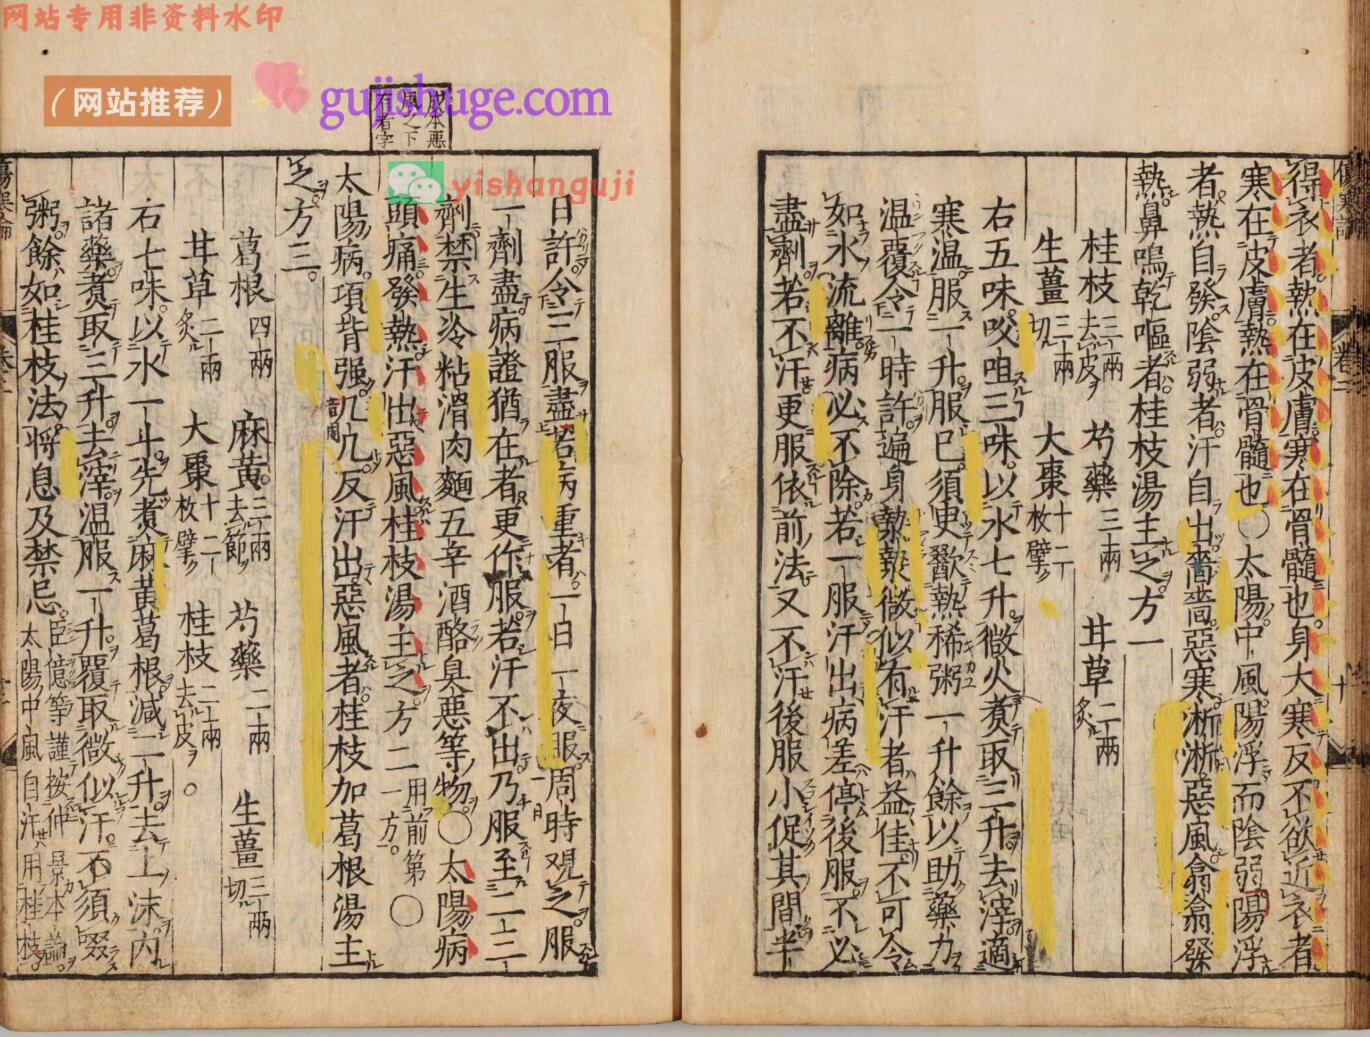 网站专用非资料水印
（网站推荐）
gujishuge.com
yishanguji
得衣者熱在皮膚寒在骨髓也身大寒反不欲近衣者
寒在皮膚熱在骨髓也○太陽中風陽浮而陰弱陽浮
者熱自發陰弱者汗自出嗇嗇惡寒淅淅惡風翕翕發
熱鼻鳴乾嘔者桂枝湯主之方一
桂枝三兩去皮 芍藥三兩 甘草二兩炙
生薑三兩切 大棗十二枚擘
右五味㕮咀三味以水七升微火煮取三升去滓適
寒溫服一升服已須臾歠熱稀粥一升餘以助藥力
溫覆令一時許遍身漐漐微似有汗者益佳不可令
如水流離病必不除若一服汗出病差停後服不必
盡劑若不汗更服依前法又不汗後服小促其間半
卷二
十
成本惡
風之下
有者字
日許令三服盡若病重者一日一夜服周時觀之服
一劑盡病證猶在者更作服若汗不出乃服至二三
劑禁生冷粘滑肉麵五辛酒酪臭惡等物○太陽病
頭痛發熱汗出惡風桂枝湯主之方二用前第一方○
太陽病項背强几几反汗出惡風者桂枝加葛根湯主
之方三
葛根四兩 麻黃三兩去節 芍藥二兩 生薑三兩切
甘草二兩炙 大棗十二枚擘 桂枝二兩去皮
右七味以水一斗先煮麻黃葛根減二升去上沫內
諸藥煮取三升去滓溫服一升覆取微似汗不須啜
粥餘如桂枝法將息及禁忌臣億等謹按仲景本論太陽中風自汗用桂枝
傷寒論